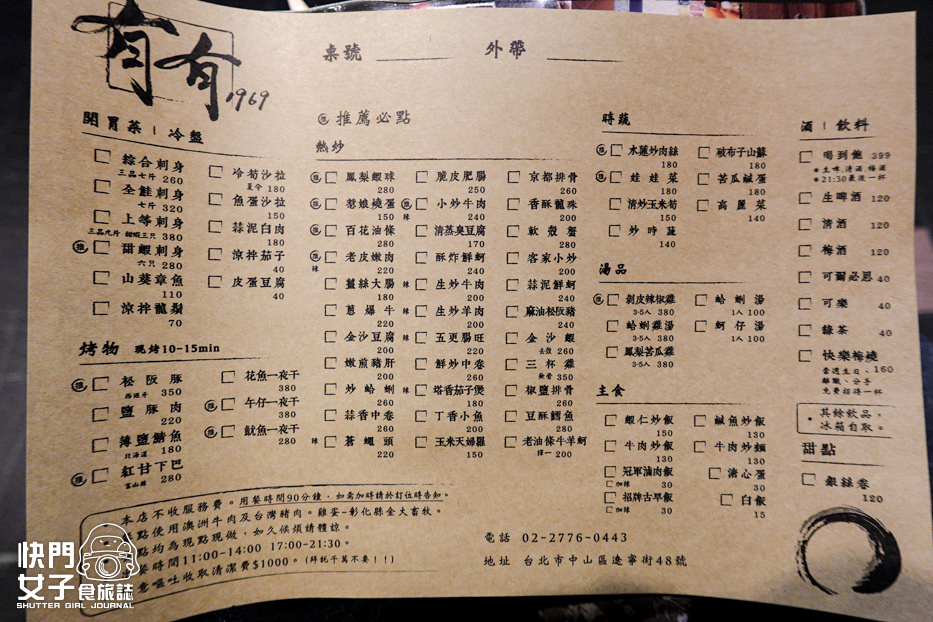 有有
1969
桌號 外帶
開胃菜 | 冷盤
綜合刺身
三品七片 260
全鮭刺身
七片 320
上等刺身
三品九片 甜蝦三只 380
推 甜蝦刺身
六只 280
山葵章魚
110
涼拌龍鬚
70
冷筍沙拉
夏令 180
魚蛋沙拉
150
蒜泥白肉
180
涼拌茄子
40
皮蛋豆腐
40
烤物 現烤10-15min
推 松阪豚
西班牙 350
鹽豚肉
220
薄鹽鯖魚
北海道 180
推 紅甘下巴
富山縣 280
花魚一夜干
380
推 午仔一夜干
380
推 魷魚一夜干
280
推 推薦必點
熱炒
推 鳳梨蝦球
280
推 憨娘燒蛋
150
推 百花油條
280
推 辣 老皮嫩肉
220
薑絲大腸
180
蔥爆牛
220
金沙豆腐
200
嫩煎豬肝
200
炒蛤蜊
200
蒜香中卷
260
辣 蒼蠅頭
220
脆皮肥腸
250
推 辣 小炒牛肉
240
清蒸臭豆腐
170
酥炸鮮蚵
240
辣 生炒牛肉
200
辣 生炒羊肉
200
辣 五更腸旺
220
鮮炒中卷
260
辣 塔香茄子煲
180
丁香小魚
200
玉米天婦羅
150
京都排骨
260
香酥龍珠
200
軟殼蟹
280
客家小炒
200
蒜泥鮮蚵
240
麻油松阪豬
240
金沙蝦
去殼 260
三杯雞
無骨 350
椒鹽排骨
260
豆酥鱈魚
280
老油條牛羊蚵
擇一 200
時蔬
推 水蓮炒肉絲
180
推 娃娃菜
180
清炒玉米筍
150
炒時蔬
140
破布子山蘇
180
苦瓜鹹蛋
180
高麗菜
140
湯品
推 剝皮辣椒雞
3-5人 380
蛤蜊雞湯
3-5人 380
鳳梨苦瓜雞
3-5人 380
蛤蜊湯
1人 100
蚵仔湯
1人 100
主食
蝦仁炒飯
150
牛肉炒飯
130
冠軍滷肉飯
加辣 30
招牌古早飯
加辣 30
鹹魚炒飯
150
牛肉炒麵
130
溏心蛋
30
白飯
15
酒 | 飲料
喝到飽 399
*生啤.清酒.梅酒
*21:30最後一杯
生啤酒 120
清酒 120
梅酒 120
可爾必思 40
可樂 40
綠茶 40
快樂梅燒
當週生日、160
離職、分手
免費招待一杯
•其餘飲品，
冰箱自取。
甜點
銀絲卷
120
本店不收服務費。用餐時間90分鐘，如需加時請於訂位時告知。
點使用澳洲牛肉及台灣豬肉。雞蛋-彰化縣全大畜牧。
點均為現點現做，如久候煩請體諒。
餐時間11:00-14:00 17:00-21:30。
意嘔吐收取清潔費$1000。(拜託千萬不要！！)
電話 02-2776-0443
地址 台北市中山區遼寧街48號
快門
女子食旅誌
SHUTTER GIRL JOURNAL